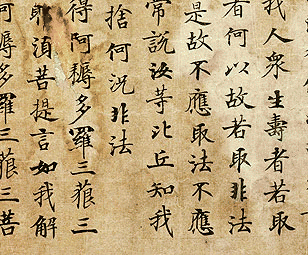 我人衆生壽者若取
者何以故若取非法
是故不應取法不應
常說汝等比丘知我
捨何況非法
得阿耨多羅三藐三
耶須菩提言如我解
阿耨多羅三藐三菩